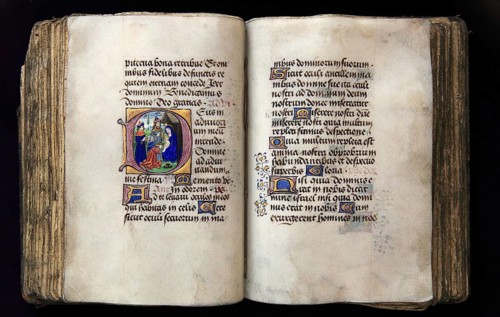 piterna bona retribue Et om
nibus fidelibus defunctis re
quiem eternam concede
dominum Benedicamus
domino Deo gracias
Deus in
adiutori
um meu
intende
Domine
ad adiu
uandum
me festina
Ad te leuaui oculos meos
qui habitas in celis Ecce
sicut oculi seruorum in ma
nibus dominorum suorum
Sicut oculi ancille in ma
nibus domine sue ita oculi
nostri ad dominum deum
nostrum donec misereatur
nostri Miserere nostri domine
miserere nostri quia multum
repleti sumus despectione
Quia multum repleta est
anima nostra obprobrium
habundantibus et despectio
superbis Gloria
Nisi quia dominus e
rat in nobis dicat
nunc israel nisi quia domi
nus erat in nobis Cum
exurgerent homines in nos